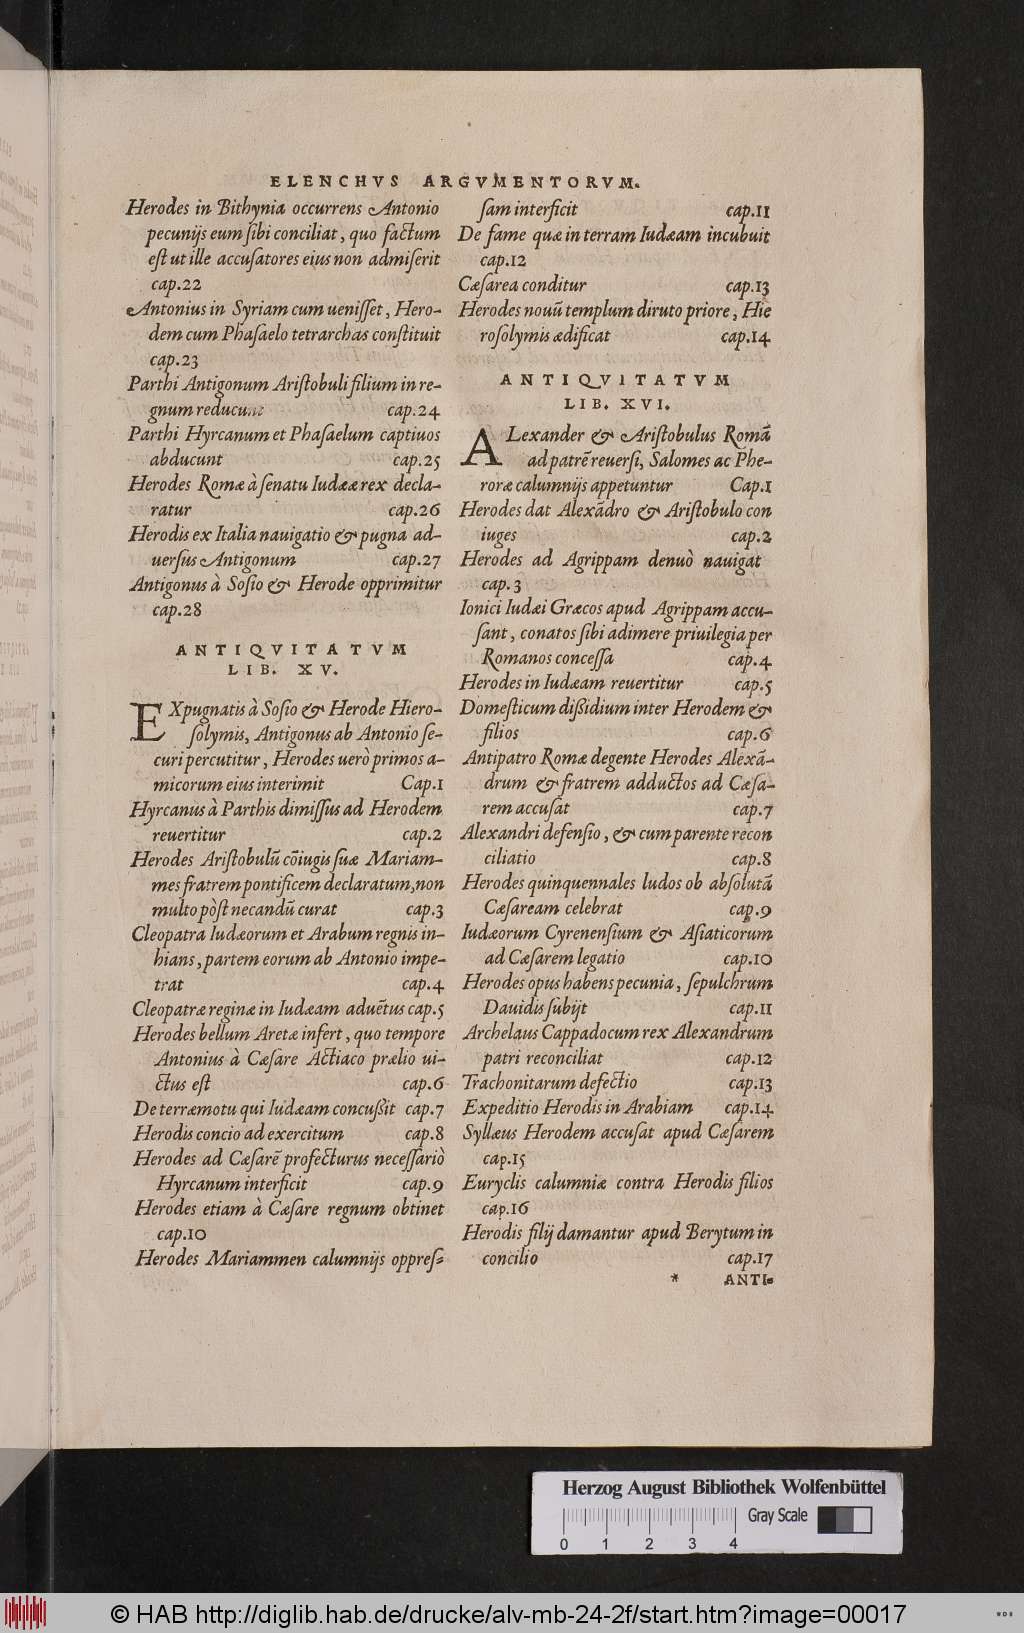 ELENCHVS ARGVMENTORVM.
Herodes in Bithynia occurrens Antonio
pecunijs eum sibi conciliat, quo factum
est ut ille accusatores eius non admiserit
cap.22
Antonius in Syriam cum uenisset, Hero-
dem cum Phasaelo tetrarchas constituit
cap.23
Parthi Antigonum Aristobuli filium in re-
gnum reducunt cap.24
Parthi Hyrcanum et Phasaelum captiuos
abducunt cap.25
Herodes Romæ à senatu Iudææ rex decla-
ratur cap.26
Herodis ex Italia nauigatio & pugna ad-
uersus Antigonum cap.27
Antigonus à Sosio & Herode opprimitur
cap.28
ANTIQVITATVM
LIB. XV.
EXpugnatis à Sosio & Herode Hiero-
solymis, Antigonus ab Antonio se-
curi percutitur, Herodes uerò primos a-
micorum eius interimit Cap.1
Hyrcanus à Parthis dimissus ad Herodem
reuertitur cap.2
Herodes Aristobulū cōiugis suæ Mariam-
mes fratrem pontificem declaratum, non
multo pòst necandū curat cap.3
Cleopatra Iudæorum et Arabum regnis in-
hians, partem eorum ab Antonio impe-
trat cap.4
Cleopatræ reginæ in Iudæam aduētus cap.5
Herodes bellum Aretæ infert, quo tempore
Antonius à Cæsare Actiaco prælio ui-
ctus est cap.6
De terræmotu qui Iudæam concußit cap.7
Herodis concio ad exercitum cap.8
Herodes ad Cæsarē profecturus necessariò
Hyrcanum interficit cap.9
Herodes etiam à Cæsare regnum obtinet
cap.10
Herodes Mariammen calumnijs oppres-
sam interficit cap.11
De fame quæ in terram Iudæam incubuit
cap.12
Cæsarea conditur cap.13
Herodes nouū templum diruto priore, Hie
rosolymis ædificat cap.14
ANTIQVITATVM
LIB. XVI.
ALexander & Aristobulus Romā
ad patrē reuersi, Salomes ac Phe-
roræ calumnijs appetuntur Cap.1
Herodes dat Alexādro & Aristobulo con
iuges cap.2
Herodes ad Agrippam denuò nauigat
cap.3
Ionici Iudæi Græcos apud Agrippam accu-
sant, conatos sibi adimere priuilegia per
Romanos concessa cap.4
Herodes in Iudæam reuertitur cap.5
Domesticum dißidium inter Herodem &
filios cap.6
Antipatro Romæ degente Herodes Alexā-
drum & fratrem adductos ad Cæsa-
rem accusat cap.7
Alexandri defensio, & cum parente recon
ciliatio cap.8
Herodes quinquennales ludos ob absolutā
Cæsaream celebrat cap.9
Iudæorum Cyrenensium & Asiaticorum
ad Cæsarem legatio cap.10
Herodes opus habens pecunia, sepulchrum
Dauidis subijt cap.11
Archelaus Cappadocum rex Alexandrum
patri reconciliat cap.12
Trachonitarum defectio cap.13
Expeditio Herodis in Arabiam cap.14
Syllæus Herodem accusat apud Cæsarem
cap.15
Euryclis calumniæ contra Herodis filios
cap.16
Herodis filij damantur apud Berytum in
concilio cap.17
* ANTI-
Herzog August Bibliothek Wolfenbüttel
Gray Scale
0 1 2 3 4
© HAB http://diglib.hab.de/drucke/alv-mb-24-2f/start.htm?image=00017